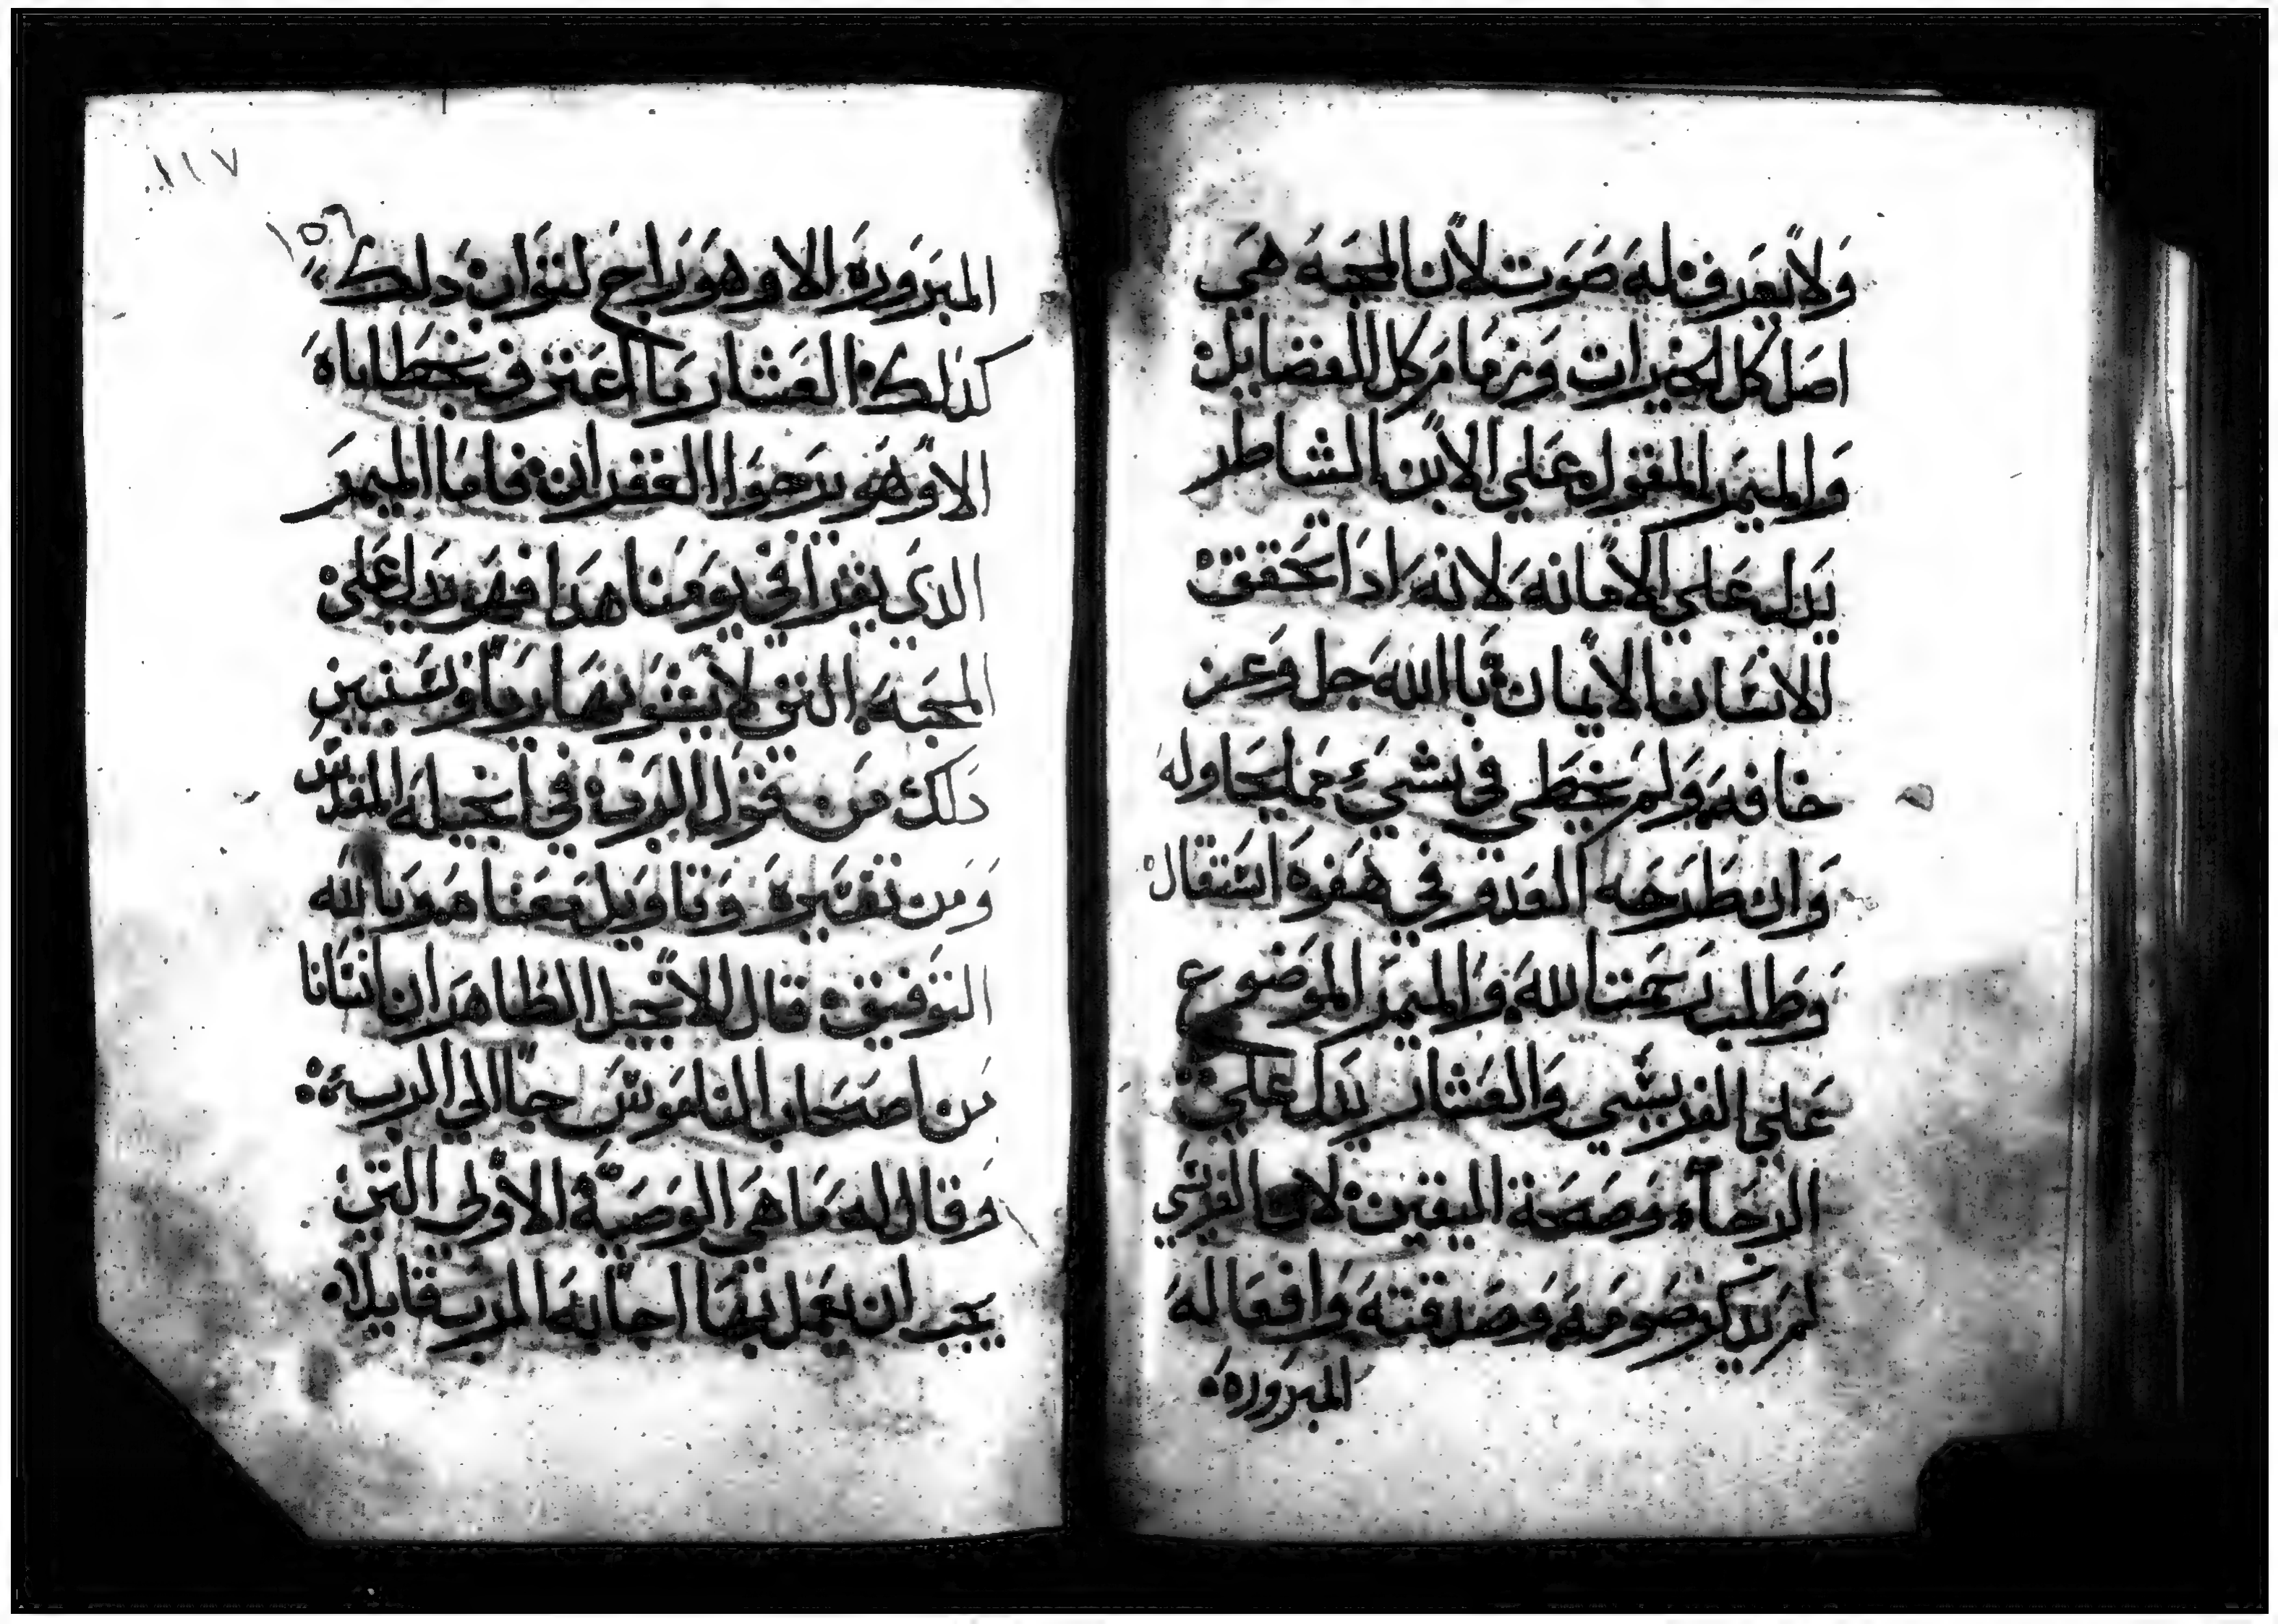 ولا بعد قتله صوت لان المحبه هي
اصل كل الخيرات وزمام كل الفضايل
والميمر المقول علي الابن الشاطر
يدل علي الامانه لانه اذا تحقق
للانسان الايمان باالله جل وعز
خافه ولم يخطي في شيء مما يحاوله
وان طرحه العدو في هفوه استقال
وطلب رحمت الله والميمر الموضوع
علي الفريسي والعشار يدل علي
الرجاء وصحة اليقين لان الفريسي
لم يذكر صومه وصدقته وافعاله
المبروره
١١٧
١٥٦
المبروره الا وهو راج لثوان دلك
كذلك العشار ما اعترف بخطاياه
الا وهو يرجوا الغفران فاما الميمر
الدي يقرا في يومنا هدا فهو يدل علي
المحبه التي لا يشوبها ريا ونبين
دلك من قول الرب في انجيله المقدس
ومن تفسيره وتاويل معناه وبالله
التوفيق قال الانجيل الطاهر ان انسانا
من اصحاب الناموس جا الي الرب
وقال له ما هي الوصية الاولي التي
يجب ان يعمل بها اجابه الرب قايلا